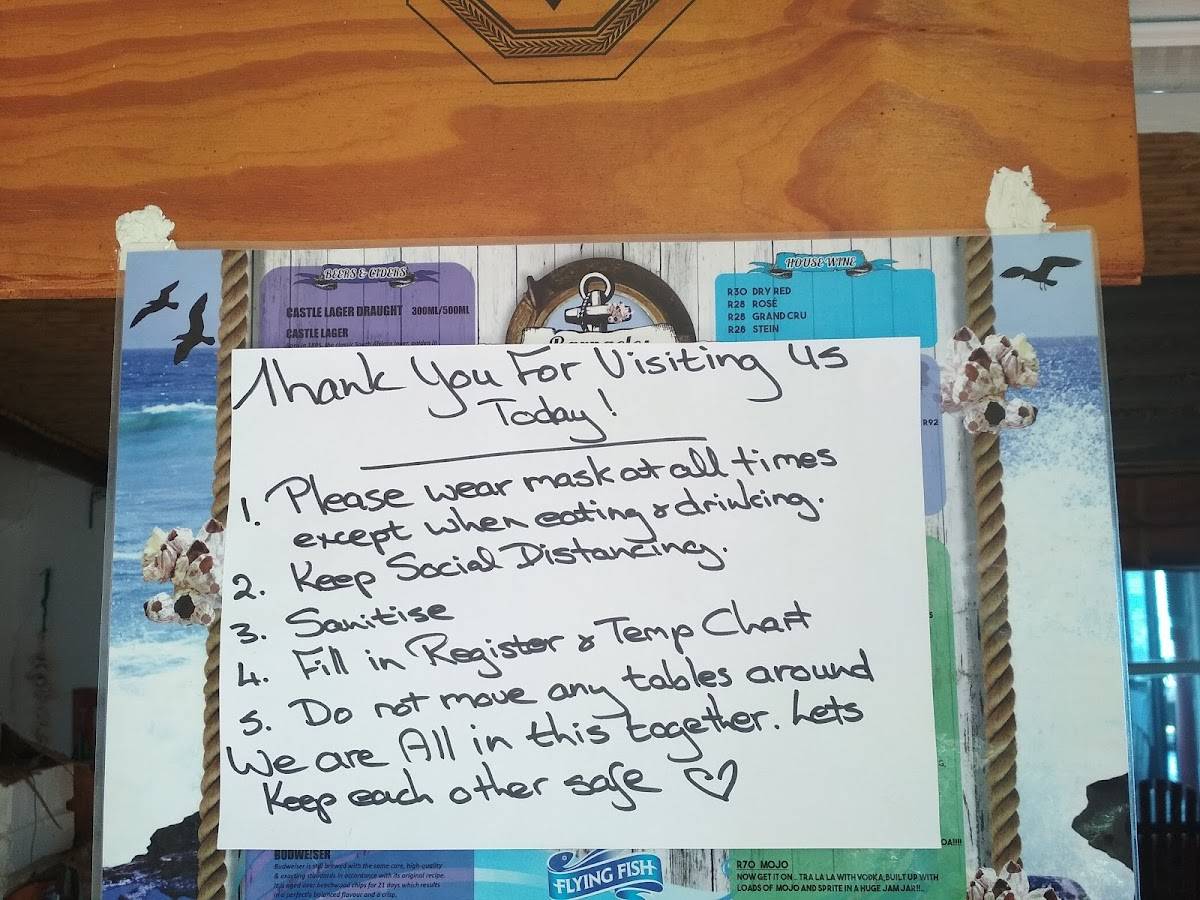 BEERS & CIDERS
CASTLE LAGER DRAUGHT 300ML/500ML
CASTLE LAGER
HOUSE WINE
R30 DRY RED
R28 ROSÉ
R28 GRAND CRU
R28 STEIN
R92
Thank You For Visiting us
Today!
1. Please wear mask at all times
except when eating & drinking.
2. Keep Social Distancing.
3. Sanitise
4. Fill in Register & Temp Chart
5. Do not move any tables around
We are All in this together. Lets
Keep each other safe
BUDWEISER
Budweiser is still brewed with the same care, high-quality
& exacting standards in accordance with its original recipe.
It is aged over beechwood chips for 21 days which results
in a perfectly balanced flavour and a crisp,
FLYING FISH
R70 MOJO
NOW GET IT ON... TRA LA LA WITH VODKA, BUILT UP WITH
LOADS OF MOJO AND SPRITE IN A HUGE JAM JAR!!..